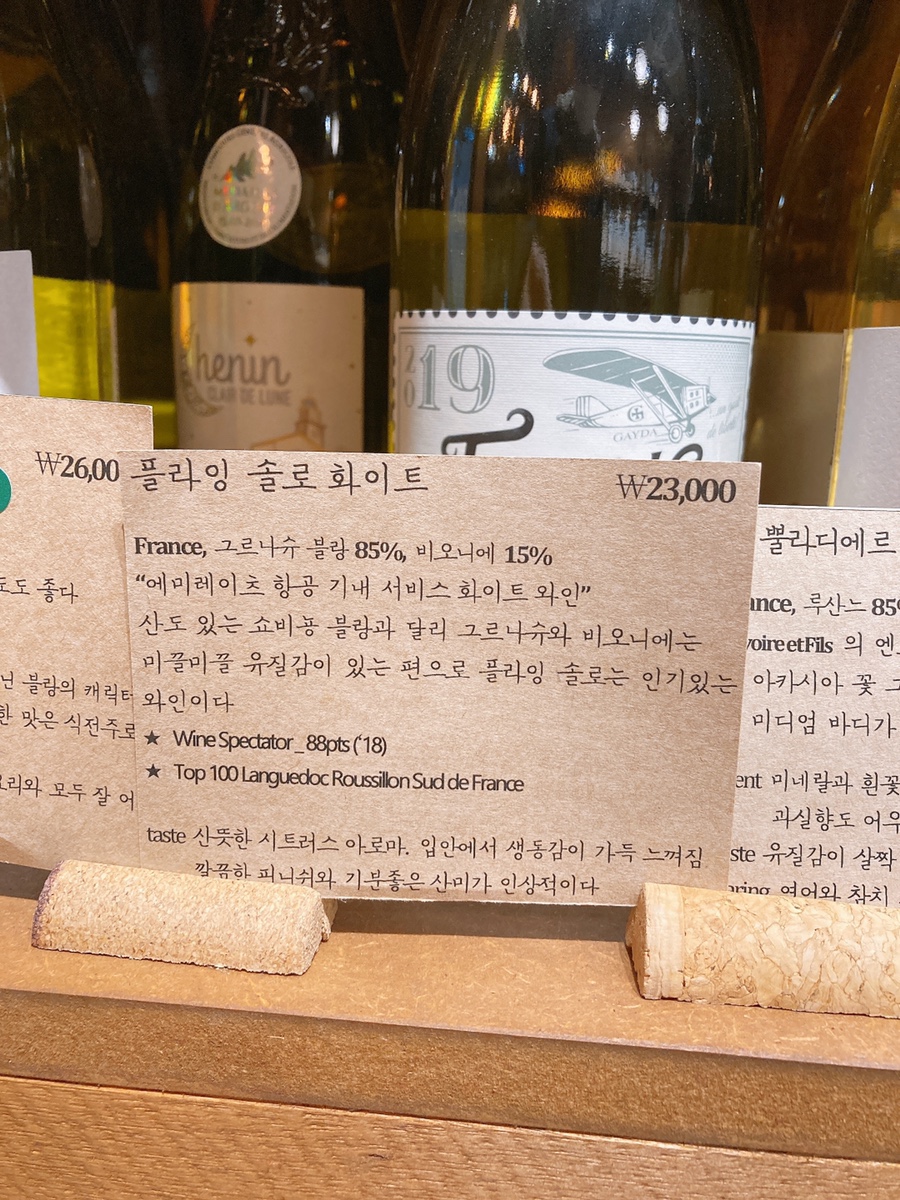 henin
CLAIR DE LUNE
2019
GAYDA
₩26,00
도 좋다
닌 블랑의 캐릭터
한 맛은 식전주로
요리와 모두 잘 어
플라잉 솔로 화이트
₩23,000
France, 그르나슈 블랑 85%, 비오니에 15%
“에미레이츠 항공 기내 서비스 화이트 와인”
산도 있는 쇼비뇽 블랑과 달리 그르나슈와 비오니에는
미끌미끌 유질감이 있는 편으로 플라잉 솔로는 인기있는
와인이다
★ Wine Spectator _ 88pts (‘18)
★ Top 100 Languedoc Roussillon Sud de France
taste 산뜻한 시트러스 아로마. 입안에서 생동감이 가득 느껴짐
깔끔한 피니쉬와 기분좋은 산미가 인상적이다
뿔라디에르
ance, 루산느 85
voire et Fils 의 엔
아카시아 꽃
미디엄 바디가
ent 미네랄과 흰꽃
과실향도 어우
ste 유질감이 살짝
aring 연어와 참치